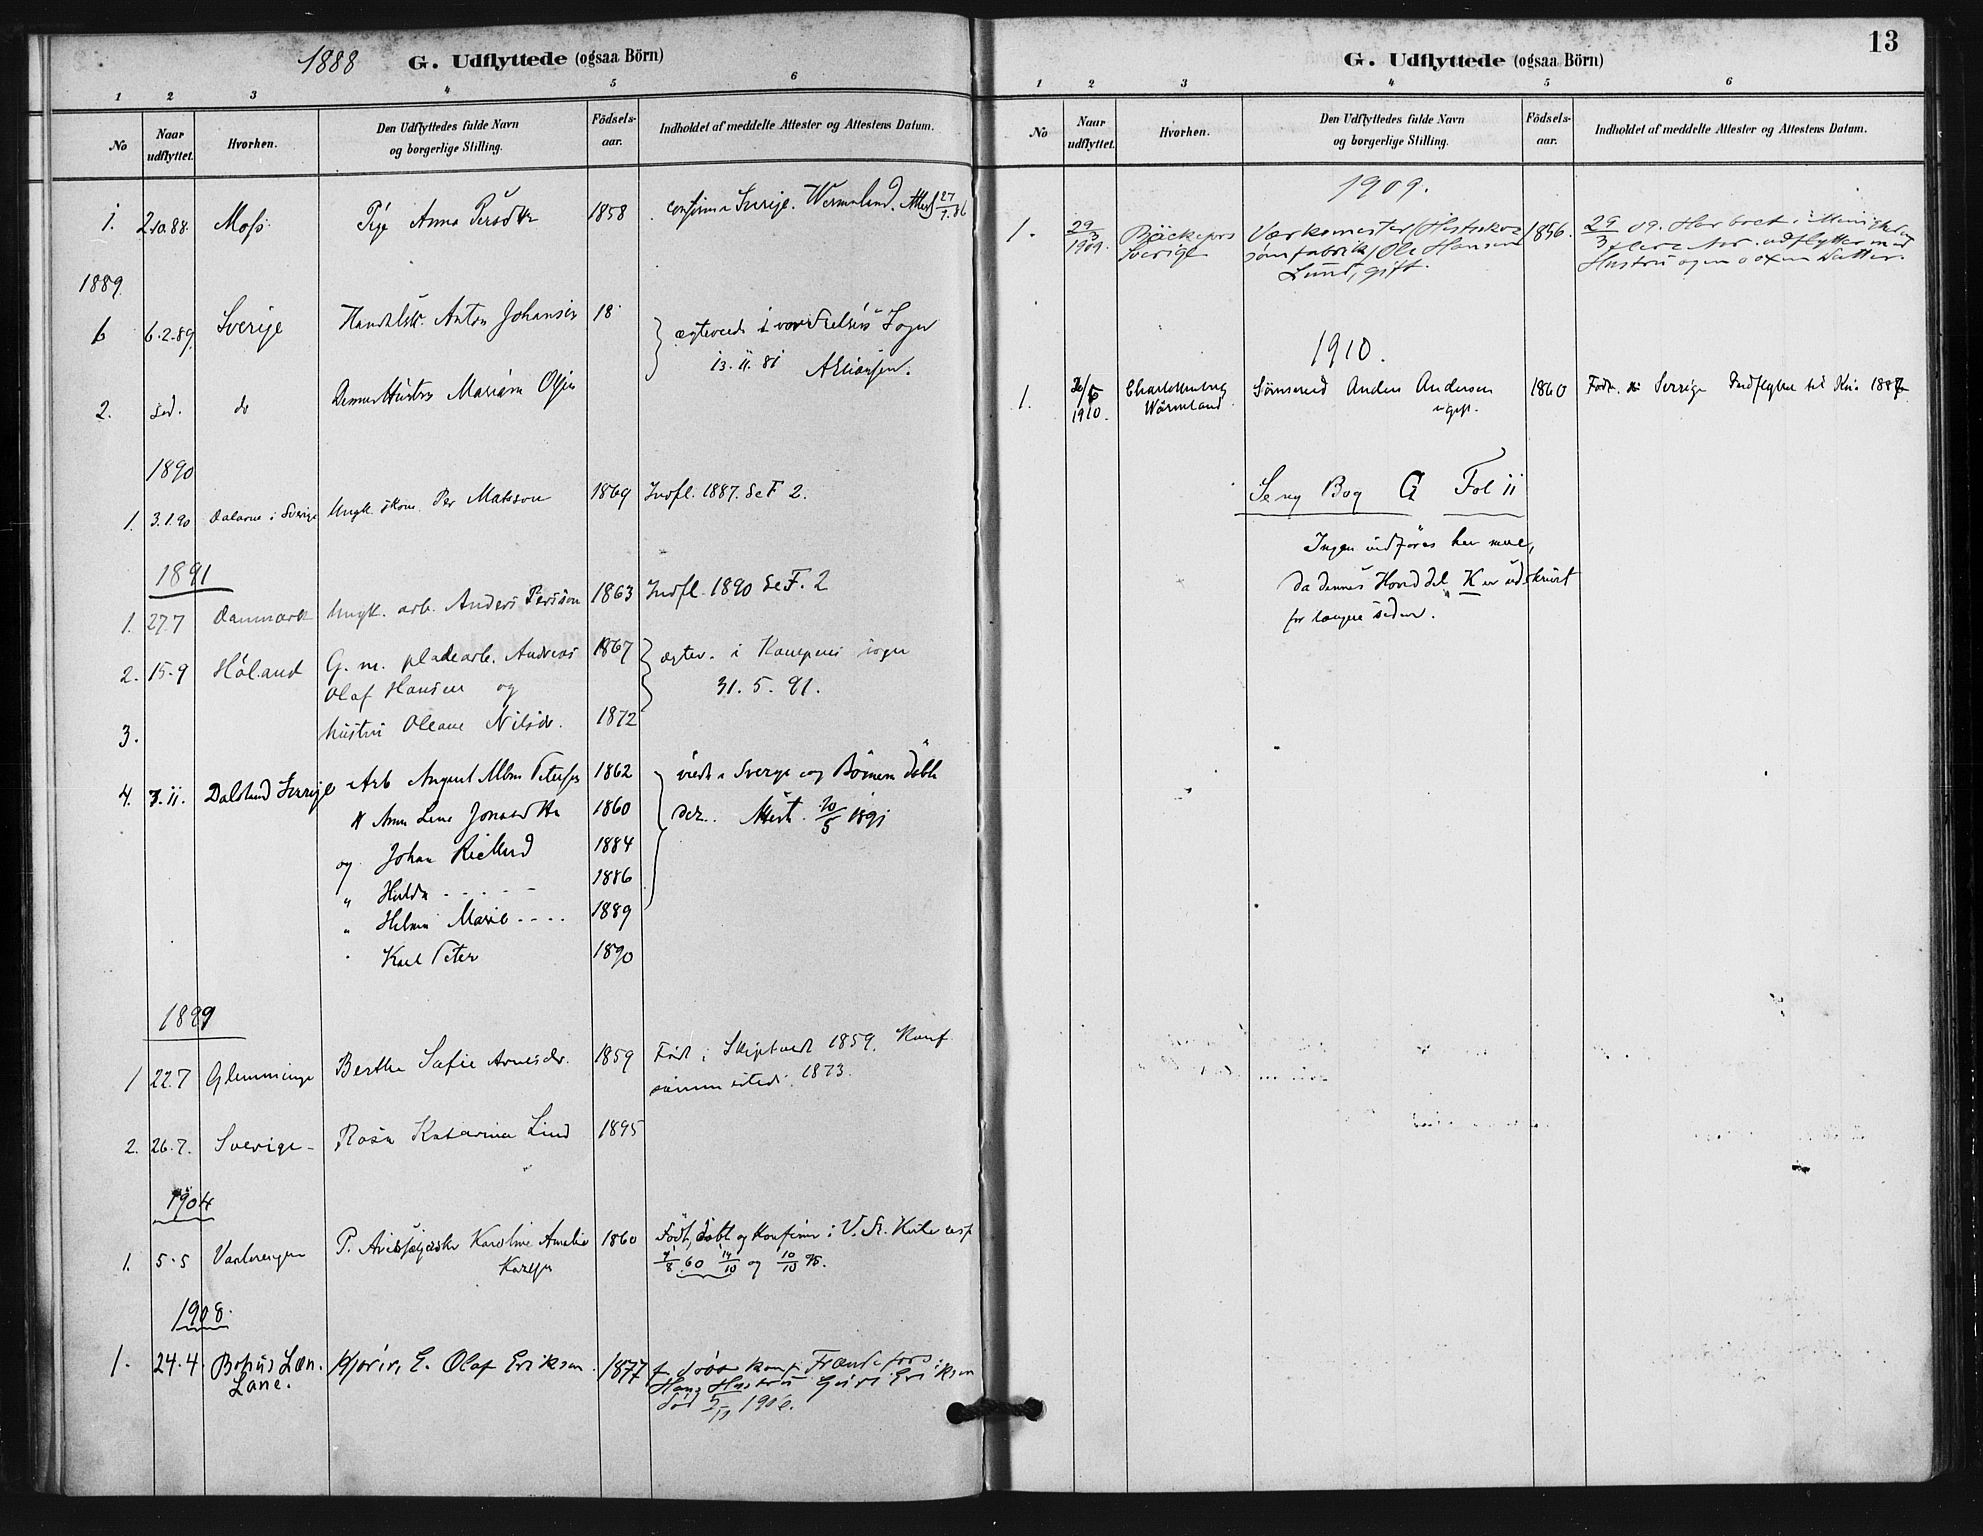 1888 G. Udflyttede (ogsaa Börn)
1 2 3 4 5 6
No Naar udflyttet. Hvorhen. Den Udflyttedes fulde Navn og borgerlige Stilling. Födsels-aar. Indholdet af meddelte Attester og Attestens Datum.
1. 2.10.88. Moss. Pige Anna Persdtr 1858 confirm i Sverige. Wermland. Attest 27/9.86
1889.
6 6.2.89. Sverige Handelsk. Anton Johansen 18 ægteviede i vor Frelsers Sogn
13.11.81
2. s.d. do Dennes Hustru Mariane Olsen
1890
1. 3.1.90 Dalarne i Sverige Ungk. skom. Per Matsson 1869 Indfl. 1887. Se F 2.
1891
1. 27.7 Danmark Ungk. arb. Anders Persson 1863 Indfl. 1890 Se F. 2
2. 15.9 Höland G. m. pladearb. Andreas 1867 ægtev. i Kampens sogn
Olaf Hansen og 31. 5. 91.
3. hustru Oleane Nilsdr. 1872
4. 3.11. Dalsland Sverige Arb August Petersen 1862 viede i Sverge og Börnene döbte
Anna Lena Jonasdtr 1860 der. Attest. 20/5 1891
og Johan Richard 1884
" Hulda - - - - - 1886
" Helma Marie - - - - 1889
Karl Peter 1890
1899
1 22.7 Glemminge Berthe Sofie Arnesdr. 1859 Födt i Skiptvedt 1859. Konf
samme steds. 1873.
2. 26.7. Sverige - Rosa Katarina Lind 1895
1904
1. 5.5 Vaalerengen P. Karoline Amalie 1860 Födt, döbt og Konfirm i V. Fr. Kirke resp
Karlsen 60 14/10 og 10/10 75.
1908.
1. 24.4. Bohus Læn. Olaf Erikson. 1877 f. döbt konf. Frændefors.
Låne. Hans Hustru Erikson
död 1906.
G. Udflyttede (ogsaa Börn) 13
1 2 3 4 5 6
No Naar udflyttet. Hvorhen. Den Udflyttedes fulde Navn og borgerlige Stilling. Födsels-aar. Indholdet af meddelte Attester og Attestens Datum.
1909.
1. 29/3 1909. Bäckefors Værksmester (Hesteskosömfabrik) Ole Hansen 1856. 29/3 09. Har boet i Menigheden
Sverige Lund, gift. flere Aar. udflytter med
Hustru og en voxen Datter.
1910.
1. 1910. Charlottenberg Sömsmed Anders Andersen 1860 Födt i Sverige Indflyttet til Kria 1887
Wärmland ugift.
Se ny Bog G Fol 11
Ingen indföres her mere,
da dennes Hoveddel K er udskrevet
for længere siden.